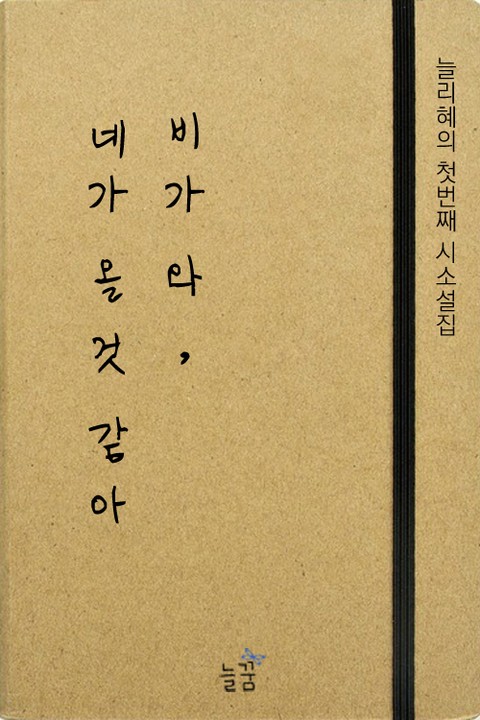 비가 와,
네가 올 것 같아
늘리혜의 첫번째 시소설집
늘꿈